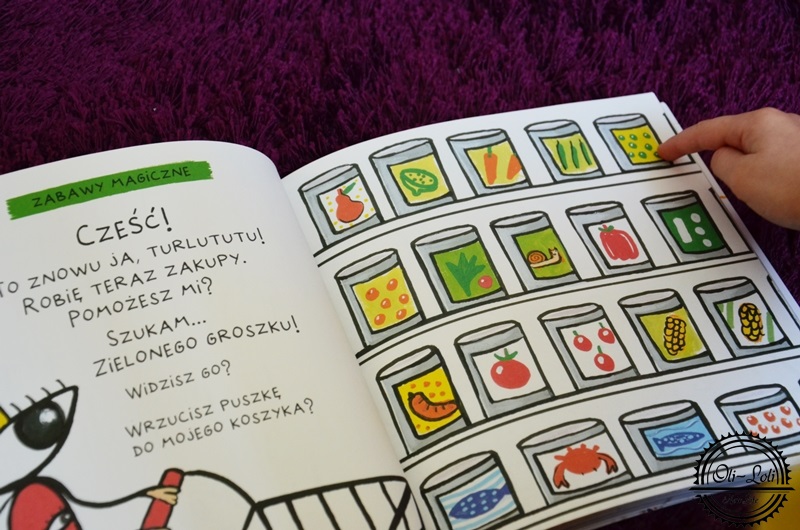 ZABAWY MAGICZNE
CZEŚĆ!
TO ZNOWU JA, TURLUTUTU!
ROBIĘ TERAZ ZAKUPY.
POMOŻESZ MI?
SZUKAM...
ZIELONEGO GROSZKU!
WIDZISZ GO?
WRZUCISZ PUSZKĘ
DO MOJEGO KOSZYKA?
Oli-Loli